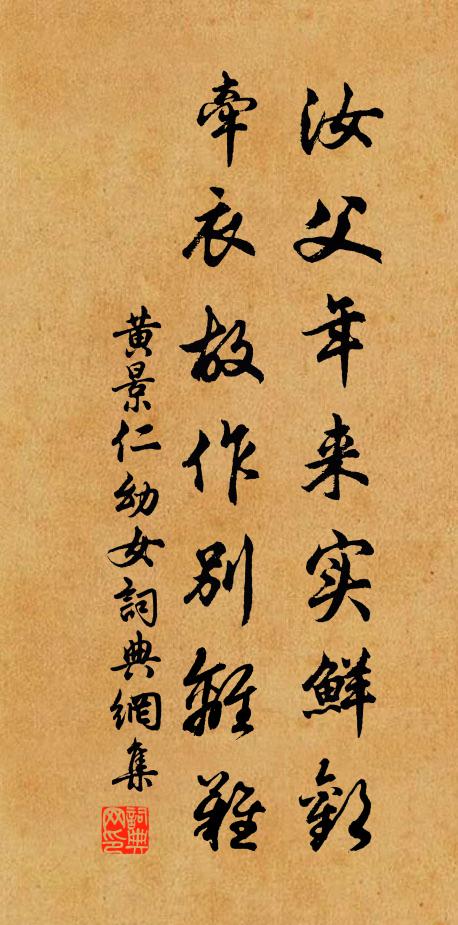 汝父年来实鲜欢
牵衣故作别离难
黄景仁幼女詞典網集
詞典网印